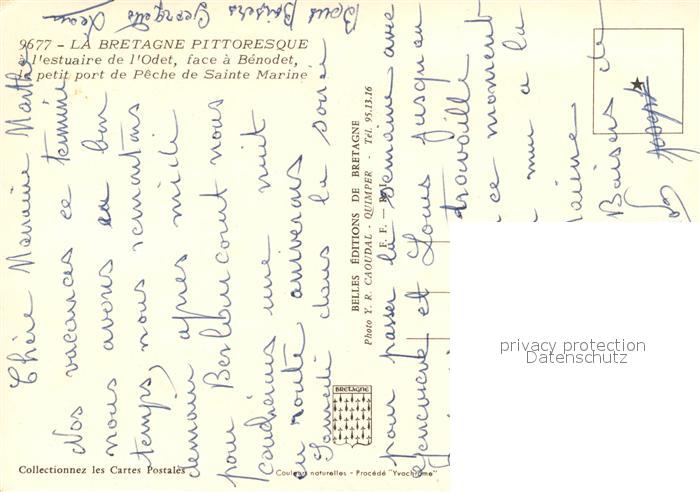 9677 - LA BRETAGNE PITTORESQUE
l'estuaire de l'Odet, face à Bénodet,
petit port de Pêche de Sainte Marine
Chère Marraine Marthe
Nos vacances ce termine
nous avons eu bon
temps, nous remontons
demain après midi
pour Berlencourt nous
coucherons une nuit
en route arriverons
Samedi dans la soirée
pour passer la semaine avec
Genevieve et Louis jusqu'au
travaille
ce moment
mer à la
Baisers de
Joseph
Bons Baisers Georgette Jean
BELLES ÉDITIONS DE BRETAGNE
Photo Y. R. CAOUDAL - QUIMPER - Tél. 95.13.16
BRETAGNE
Collectionnez les Cartes Postales
Couleurs naturelles - Procédé "Yvochrome"
privacy protection
Datenschutz